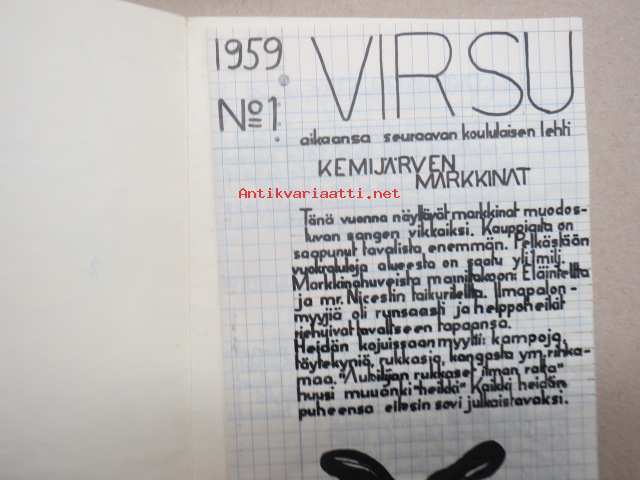 1959 VIRSU
No 1.
aikaansa seuraavan koululaisen lehti
KEMIJÄRVEN
MARKKINAT
Antikvariaatti.net
Tänä vuonna näyttävät markkinat muodos-
tuvan sangen vilkkaiksi. Kauppiaita on
saapunut tavalista enemmän. Pelkästään
vuokratuloja alueesta on saatu yli milj.
Markkinahuveista mainitakooni Eläinteltta
ja mr. Nicestin taikuriteltta. Ilmapalon-
myyjiä oli runsaasti ja helppoheikit
riehuivat tavalliseen tapaansa.
Heidän kojuissaan myytii: kampoja,
täytekyniä, rukkasia, kangasta ym. rihka-
maa. "Aubilijan rukkaset ilman rahaa"
huusi muuänki "heikki" Kaikki heidän
puheensa eitesin sovi julkaistavaksi.